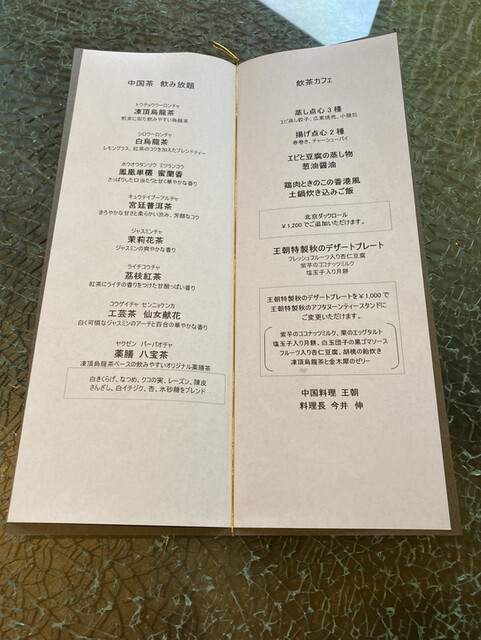 中国茶 飲み放題
トウチョウウーロンチャ
凍頂烏龍茶
煎茶に似た飲みやすい烏龍茶
シロウーロンチャ
白烏龍茶
レモングラス、紅茶のコクを加えたブレンドティー
ホウオウタンソウ ミツランコウ
鳳凰単欉 蜜蘭香
さっぱりした口当たりと甘く華やかな香り
キュウテイプーアルチャ
宮廷普洱茶
まろやかな甘さと柔らかい渋み、芳醇なコク
ジャスミンチャ
茉莉花茶
ジャスミンの爽やかな香り
ライチコウチャ
荔枝紅茶
紅茶にライチの香りをつけた甘酸っぱい香り
コウゲイチャ センニョケンカ
工芸茶 仙女献花
白く可憐なジャスミンのアーチと百合の華やかな香り
ヤクゼン パーパオチャ
薬膳 八宝茶
凍頂烏龍茶ベースの飲みやすいオリジナル薬膳茶
白きくらげ、なつめ、クコの実、レーズン、陳皮
さんざし、白イチジク、杏、氷砂糖をブレンド
飲茶カフェ
蒸し点心3種
エビ蒸し餃子、広東焼売、小籠包
揚げ点心2種
春巻き、チャーシューパイ
エビと豆腐の蒸し物
葱油醤油
鶏肉ときのこの香港風
土鍋炊き込みご飯
北京ダックロール
¥1,200でご追加いただけます。
王朝特製秋のデザートプレート
フレッシュフルーツ入り杏仁豆腐
紫芋のココナッツミルク
塩玉子入り月餅
王朝特製秋のデザートプレートを¥1,000で
王朝特製秋のアフタヌーンティースタンドに
ご変更いただけます。
紫芋のココナッツミルク、栗のエッグタルト
塩玉子入り月餅、白玉団子の黒ゴマソース
フルーツ入り杏仁豆腐、胡桃の飴炊き
凍頂烏龍茶と金木犀のゼリー
中国料理 王朝
料理長 今井 伸